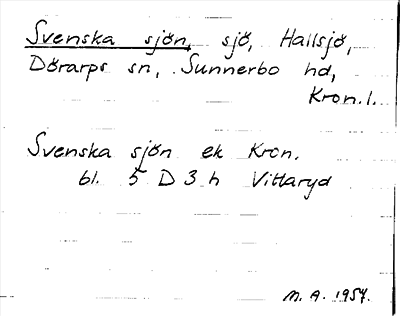 Svenska sjön, sjö, Hallsjö,
Dörarps sn, Sunnerbo hd,
Kron.l.
Svenska sjön ek Kron.
bl. 5 D 3 h Vittaryd
M. A. 1957.